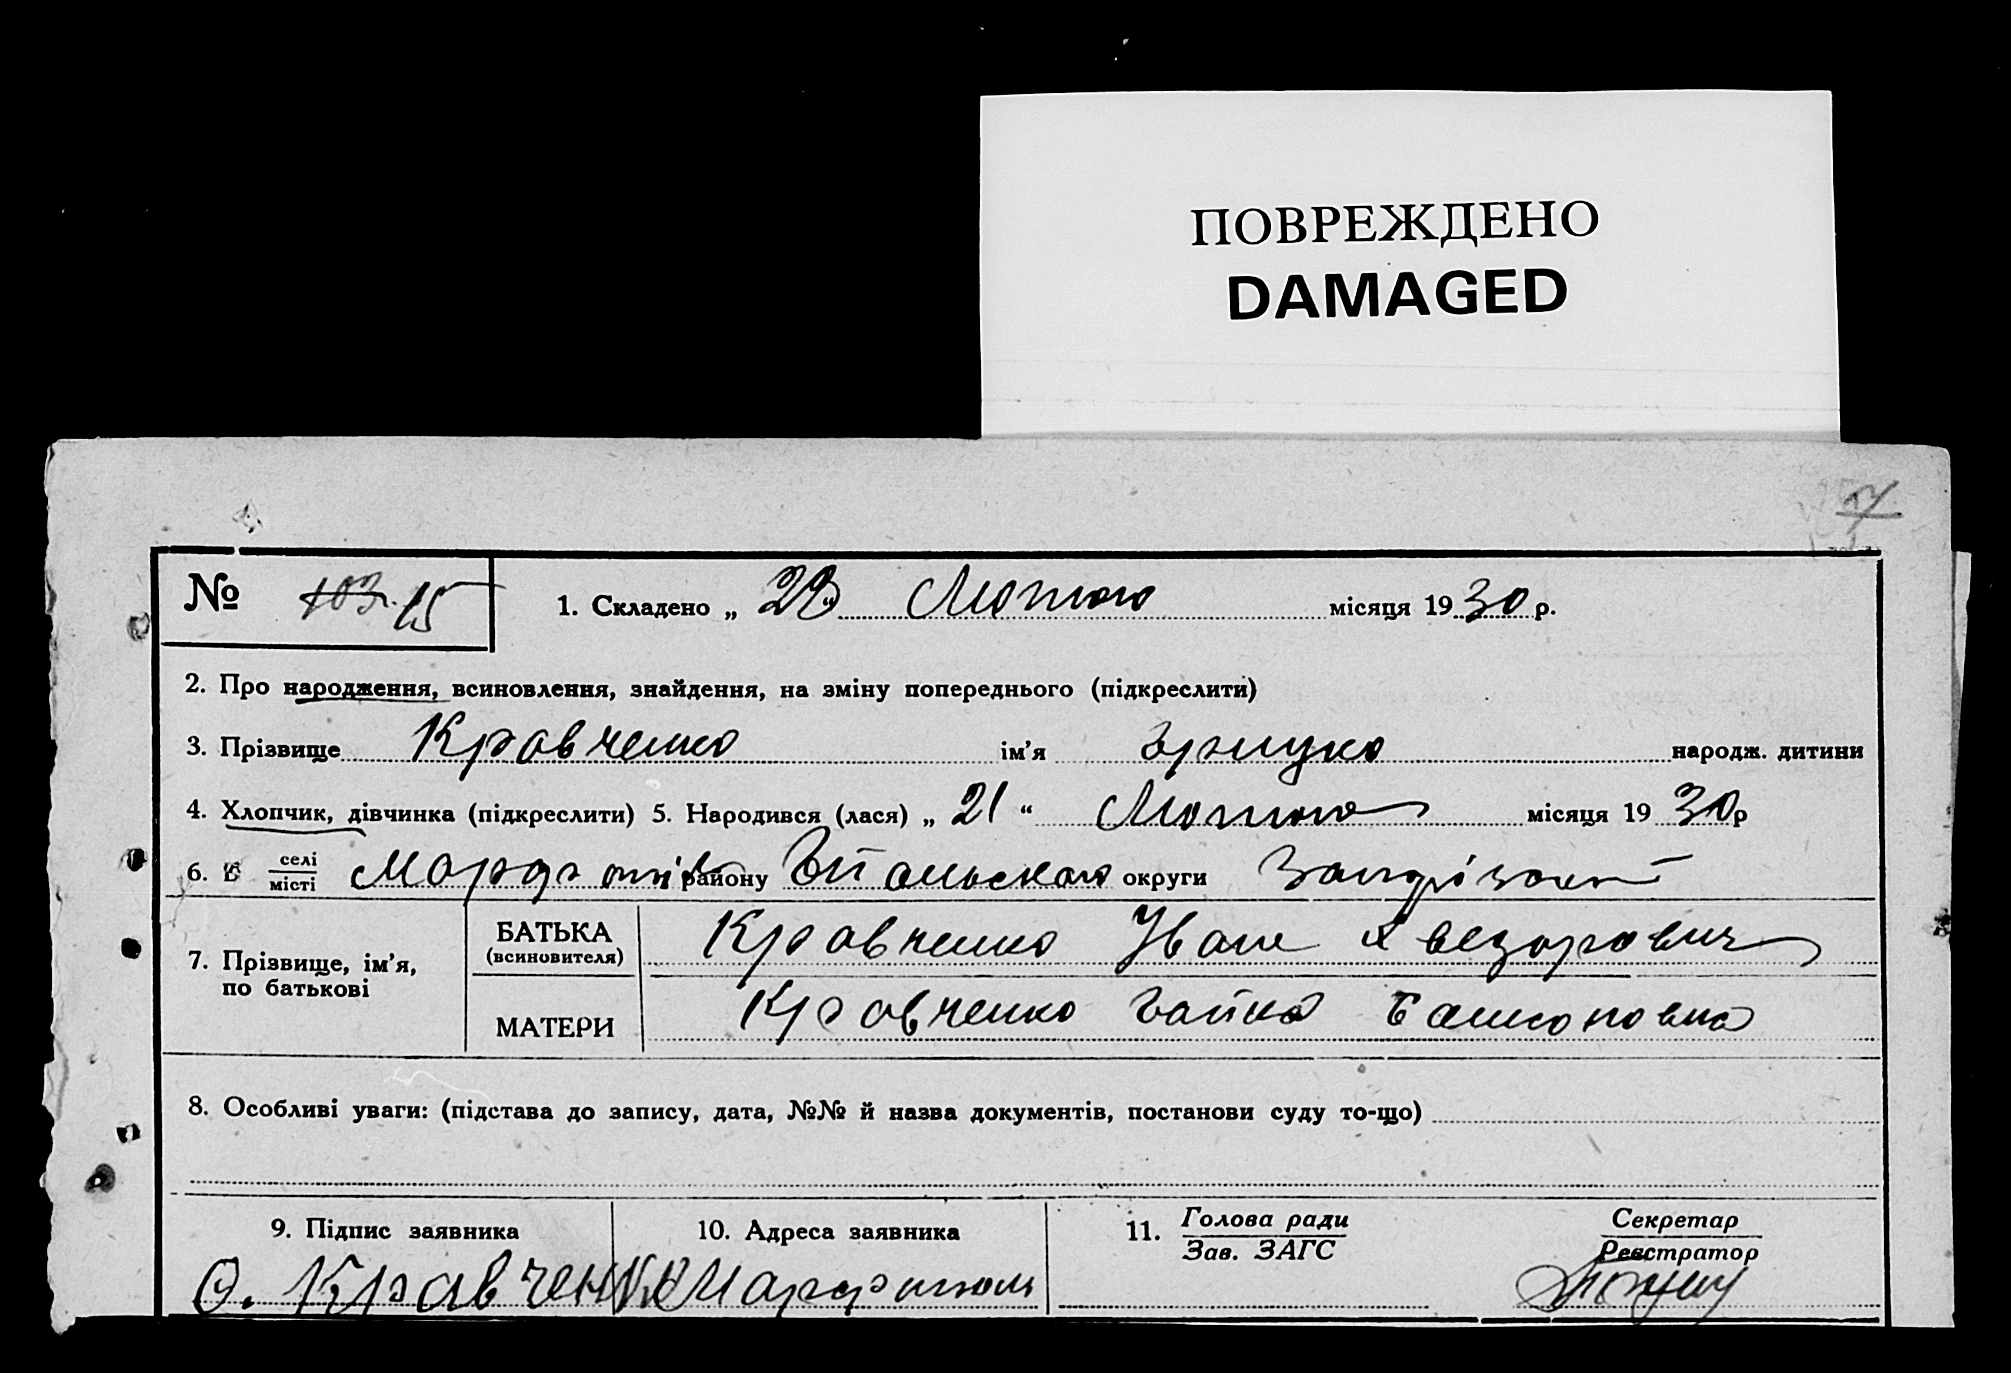 ПОВРЕЖДЕНО
DAMAGED
7
№ 103. 15
1. Складено „ 22 “ Лютого місяця 1930 р.
2. Про народження, всиновлення, знайдення, на зміну попереднього (підкреслити)
3. Прізвище Кравченко ім'я народж. дитини
4. Хлопчик, дівчинка (підкреслити) 5. Народився (лася) „ 21 “ Лютого місяця 1930р
6. В селі місті району округи
7. Прізвище, ім'я, по батькові
БАТЬКА (всиновителя) Кравченко Іван
МАТЕРИ Кравченко
8. Особливі уваги: (підстава до запису, дата, №№ й назва документів, постанови суду то-що)
9. Підпис заявника 10. Адреса заявника 11. Голова ради Секретар
Зав. ЗАГС Реєстратор
О. Кравченко